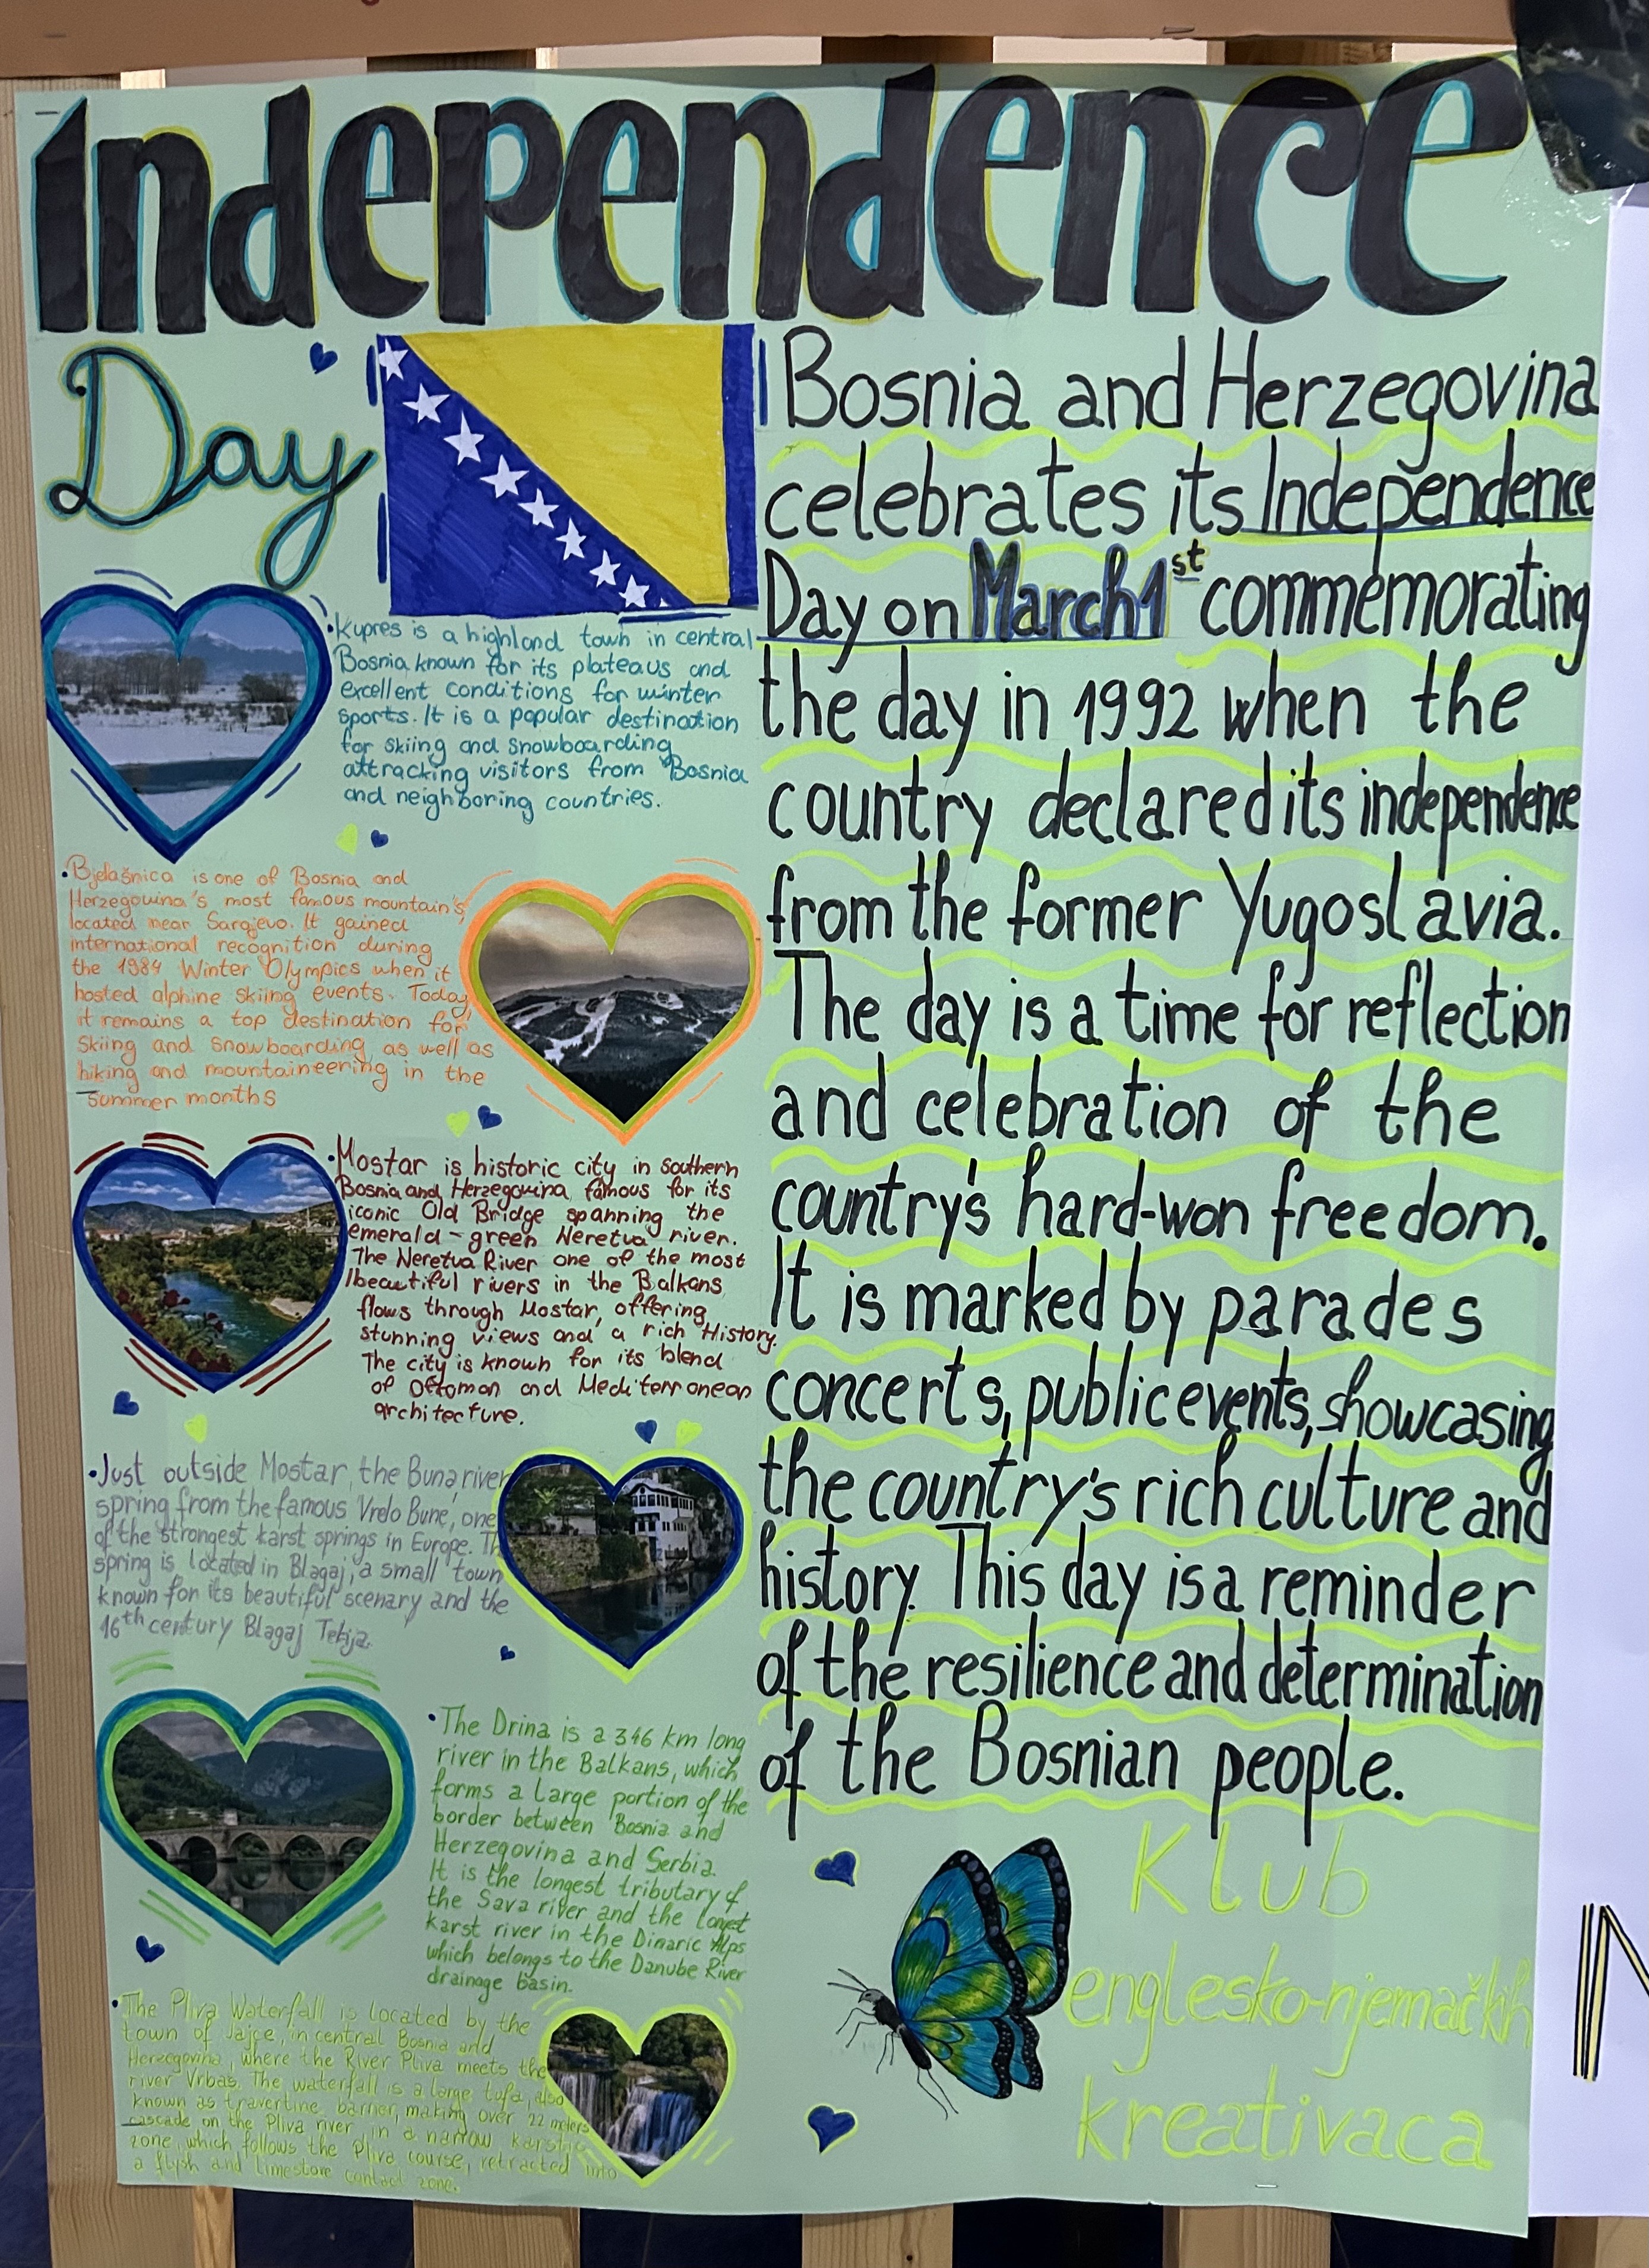 Independence
Day
Bosnia and Herzegovina
celebrates its Independence
Day on March 1st commemorating
the day in 1992 when the
country declared its independence
from the former Yugoslavia.
The day is a time for reflection
and celebration of the
country's hard-won freedom.
It is marked by parades
concerts, public events, showcasing
the country's rich culture and
history. This day is a reminder
of the resilience and determination
of the Bosnian people.
• Kupres is a highland town in central
Bosnia known for its plateaus and
excellent conditions for winter
sports. It is a popular destination
for skiing and snowboarding
attracking visitors from Bosnia
and neighboring countries.
• Bjelašnica is one of Bosnia and
Herzegowina's most famous mountain's,
located near Sarajevo. It gained
international recognition during
the 1984 Winter Olympics when it
hosted alphine skiing events. Today
it remains a top destination for
skiing and snowboarding as well as
hiking and mountaineering in the
summer months
• Mostar is historic city in southern
Bosnia and Herzegowina, famous for its
iconic Old Bridge spanning the
emerald-green Neretva river.
The Neretva River one of the most
beautiful rivers in the Balkans
flows through Mostar, offering
stunning views and a rich History.
The city is known for its blend
of Ottoman and Mediterranean
architecture.
• Just outside Mostar, the Buna river
spring from the famous Vrelo Bune, one
of the strongest karst springs in Europe.
spring is located in Blagaj, a small town
known for its beautiful scenary and the
16th century Blagaj Tekija.
• The Drina is a 346 km long
river in the Balkans, which
forms a large portion of the
border between Bosnia and
Herzegovina and Serbia.
It is the longest tributary of
the Sava river and the longest
karst river in the Dinaric Alps
which belongs to the Danube River
drainage basin.
• The Pliva Waterfall is located by the
town of Jajce, in central Bosnia and
Herzegovina, where the River Pliva meets the
river Vrbas. The waterfall is a large tufa, also
known as travertine, barrier, making over 22 meters
cascade on the Pliva river, in a narrow karstic
zone, which follows the Pliva course, retracted into
a flysh and limestone contact zone.
Klub
englesko-njemačkih
kreativaca